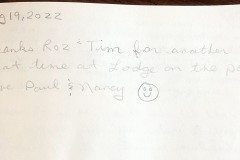 g 19, 2022
anks Roz & Tim for another
at time at Lodge on the po
ve Paul & Nancy